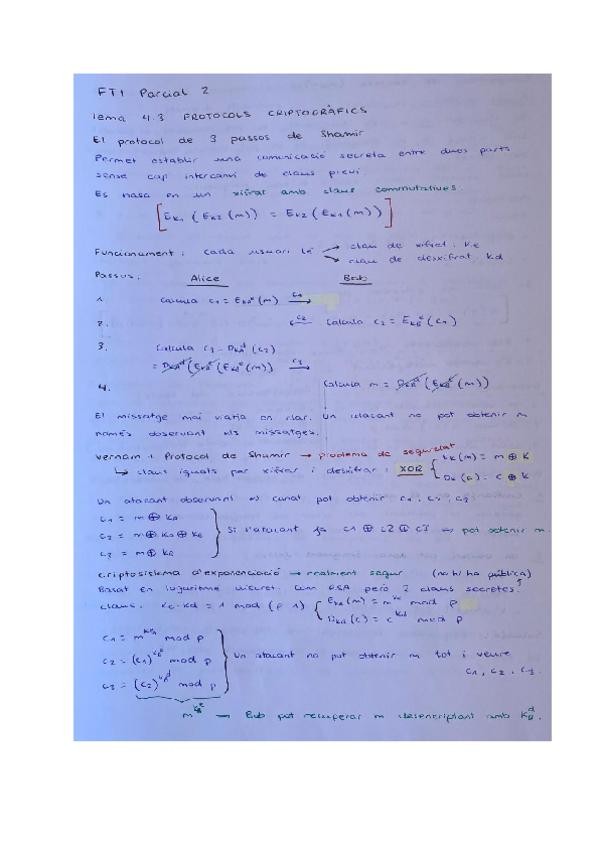 FTI Parcial 2
Tema 4.3 PROTOCOLS CRIPTOGRÀFICS
El protocol de 3 passos de Shamir
Permet establir una comunicació secreta entre dues parts
sense cap intercanvi de claus previ.
Es basa en un xifrat amb claus commutatives.
[E_{K1} (E_{K2} (m)) = E_{K2} (E_{K1} (m))]
Funcionament: cada usuari té → clau de xifrat: Ke
→ clau de desxifrat: Kd
Passos: Alice Bob
1. Calcula c_1 = E_{K_A^e} (m) c_1 →
2. ← c_2 Calcula c_2 = E_{K_B^e} (c_1)
3. Calcula c_3 = D_{K_A^d} (c_2)
= D_{K_A^d} (E_{K_A^e} (E_{K_B^e} (m))) c_3 →
4. Calcula m = D_{K_B^d} (E_{K_B^e} (m))
El missatge mai viatja en clar. Un atacant no pot obtenir m
només observant els missatges.
Vernam i Protocol de Shamir → problema de seguretat
↳ claus iguals per xifrar i desxifrar: XOR { E_K (m) = m ⊕ K
D_K (c) = c ⊕ K
Un atacant observant el canal pot obtenir c_1, c_2, c_3
c_1 = m ⊕ K_A
c_2 = m ⊕ K_A ⊕ K_B } Si l'atacant fa c1 ⊕ c2 ⊕ c3 ⇒ pot obtenir m.
c_3 = m ⊕ K_B
Criptosistema d'exponenciació → realment segur (no hi ha pública)
Basat en logaritme discret. Com RSA però 2 claus secretes.
Claus: Ke·Kd = 1 mod (p-1) { E_{Ke} (m) = m^{Ke} mod p
D_{Kd} (c) = c^{Kd} mod p
c_1 = m^{K_A^e} mod p
c_2 = (c_1)^{K_B^e} mod p } Un atacant no pot obtenir m tot i veure
c_3 = (c_2)^{K_A^d} mod p c_1, c_2, c_3.
m^{K_B^e} → Bob pot recuperar m desencriptant amb K_B^d.